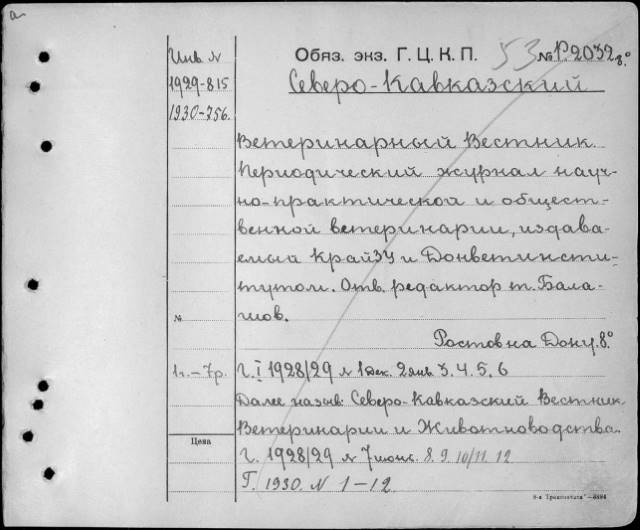 a
Инв. N
1929-815
1930-756.
Обяз. экз. Г. Ц. К. П.
53 № Р.2032 8.°
Северо-Кавказский
Ветеринарный Вестник.
Периодический журнал науч-
но-практической и общест-
венной ветеринарии, издава-
емый КрайЗУ и Донветинсти-
тутом. Отв. редактор т. Бала-
шов.
№
Ростов на Дону. 8.°
1г. - 7р.
Г. I 1928/29 N 1 дек. 2 янв. 3. 4. 5. 6
Далее назыв: Северо-Кавказский Вестник
Ветеринарии и Животноводства.
Цена
Г. 1928/29 N 7 июнь. 8. 9. 10/11. 12
Г. 1930. N 1-12.